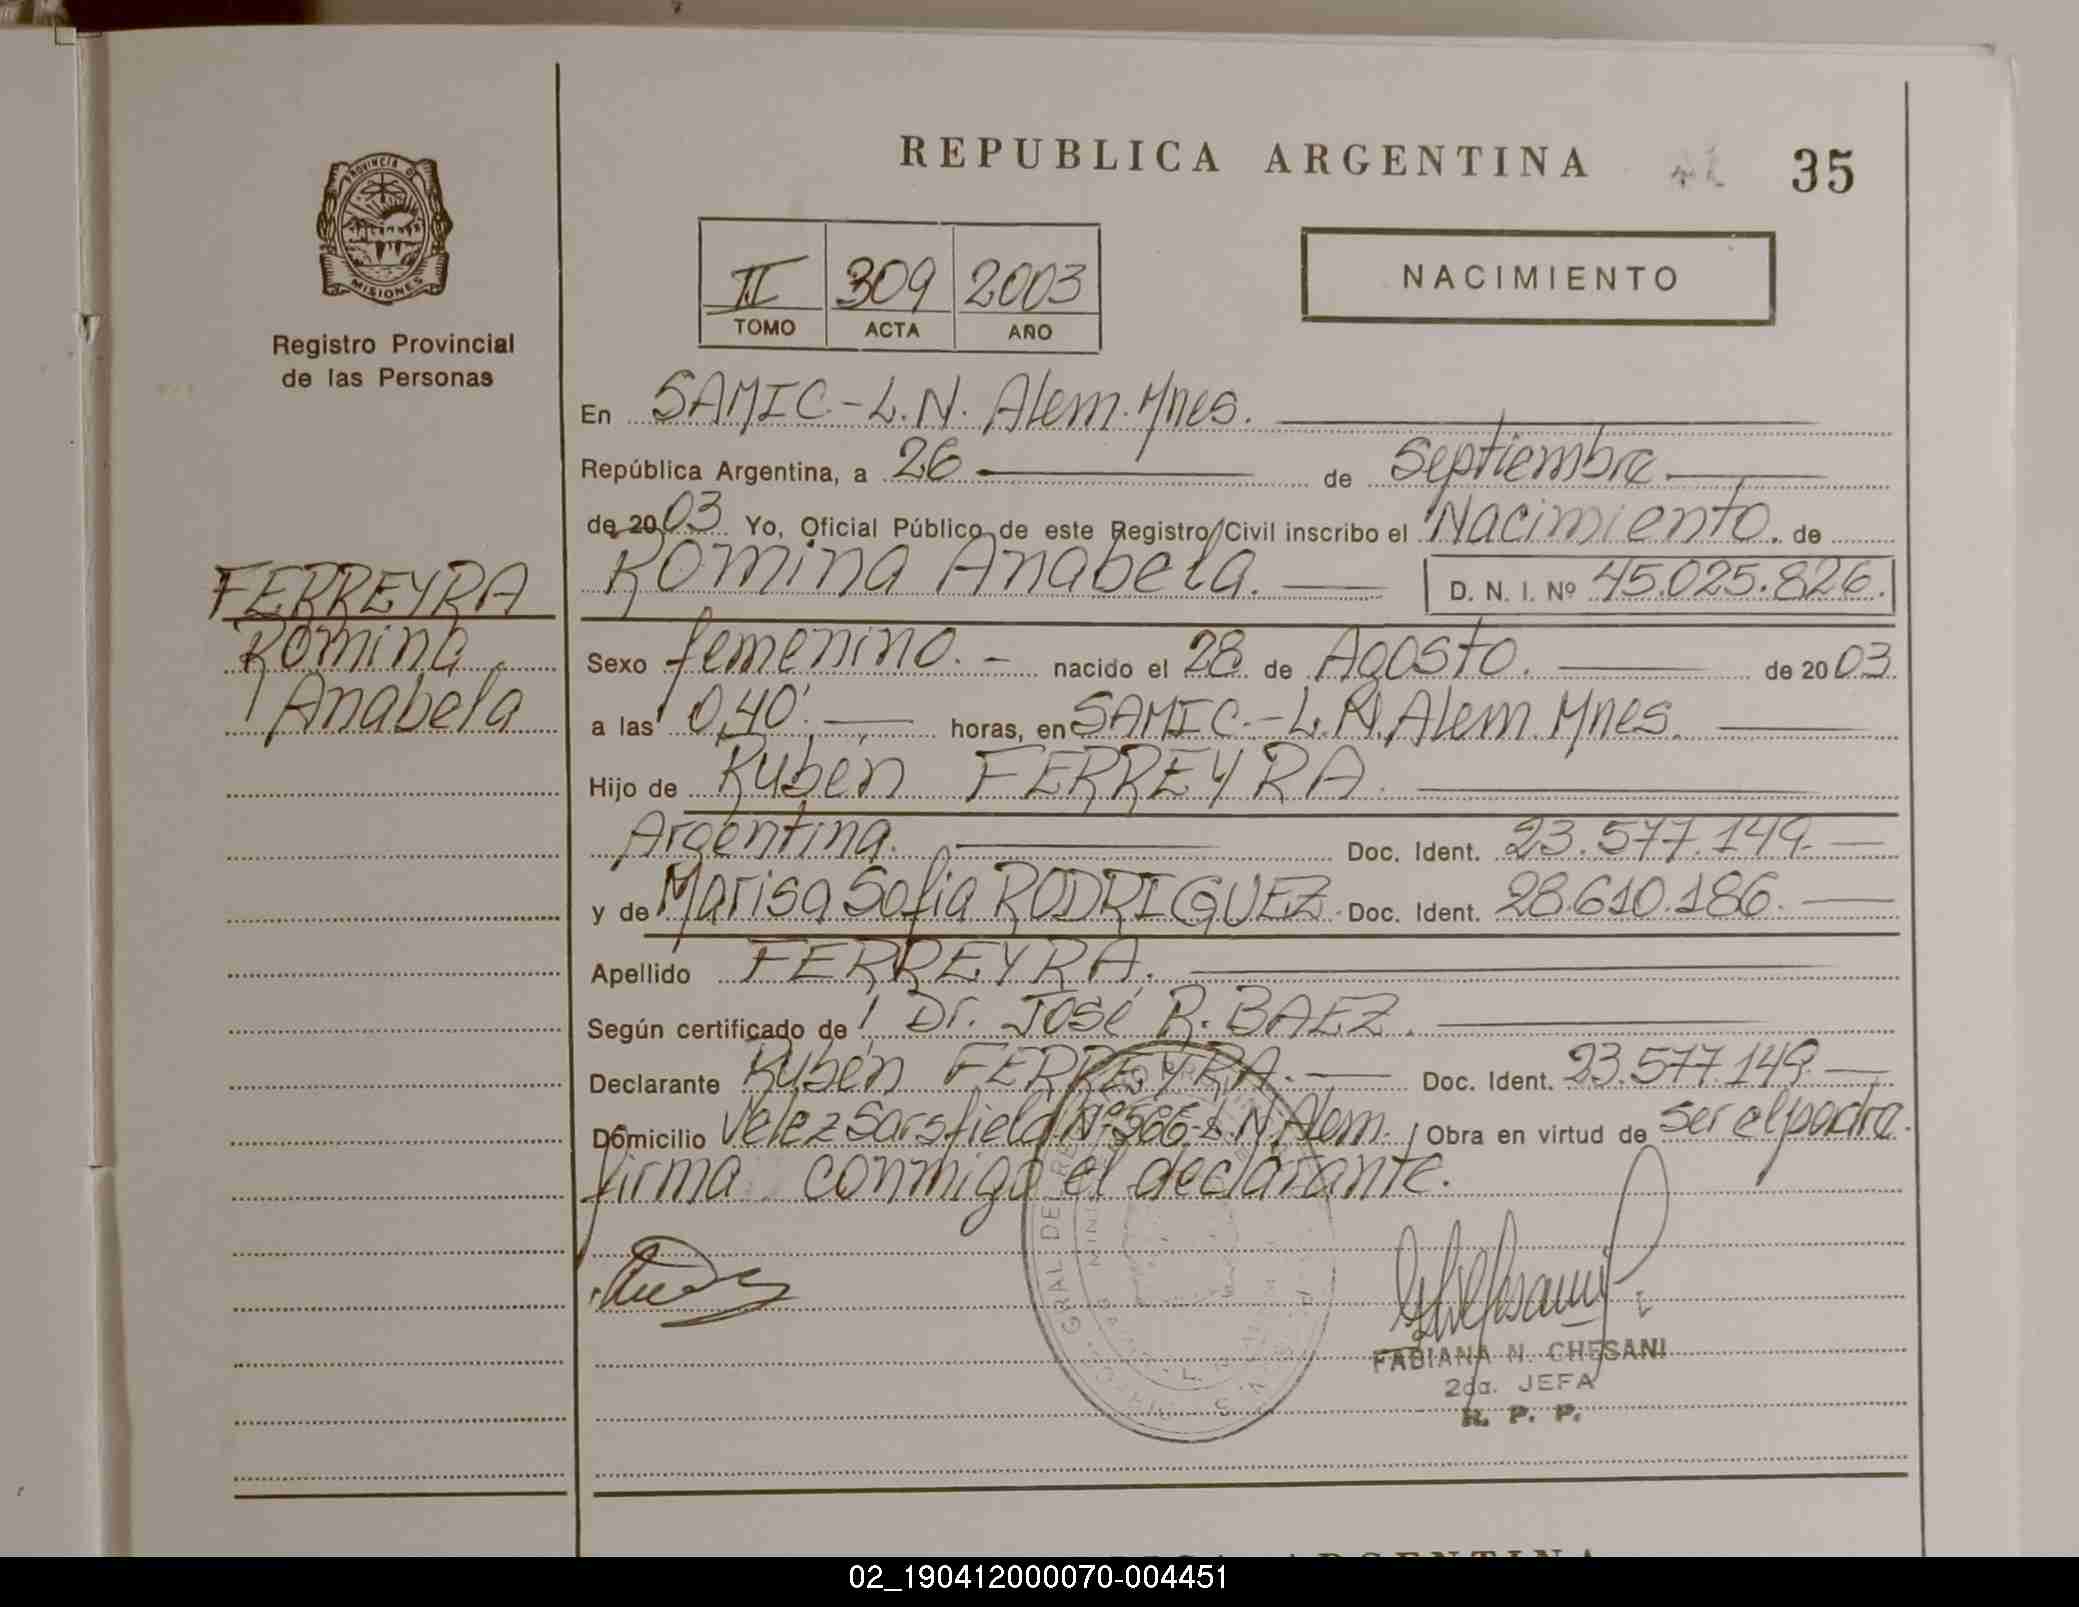 REPUBLICA ARGENTINA 35
PROVINCIA DE
MISIONES
Registro Provincial
de las Personas
II 309 2003
TOMO ACTA AÑO
NACIMIENTO
En SAMIC - L.N. Alem. Mnes.
República Argentina, a 26 de Septiembre
de 2003 Yo, Oficial Público de este Registro Civil inscribo el Nacimiento. de
Romina Anabela. D. N. I. Nº 45.025.826.
FERREYRA
Romina
Anabela
Sexo femenino. - nacido el 28 de Agosto. de 2003
a las 0,40'. horas, en SAMIC.- L.N. Alem. Mnes.
Hijo de Rubén FERREYRA.
Argentina. Doc. Ident. 23.577.149.
y de Marisa Sofia RODRIGUEZ. Doc. Ident. 28.610.186.
Apellido FERREYRA.
Según certificado de Dr. José R. BAEZ.
Declarante Rubén FERREYRA. Doc. Ident. 23.577.149
Domicilio Velez Sarsfield Nº 566-L.N. Alem. Obra en virtud de ser el padre.
firma conmigo el declarante.
FABIANA N. CHESANI
2da. JEFA
R. P. P.
02_190412000070-004451